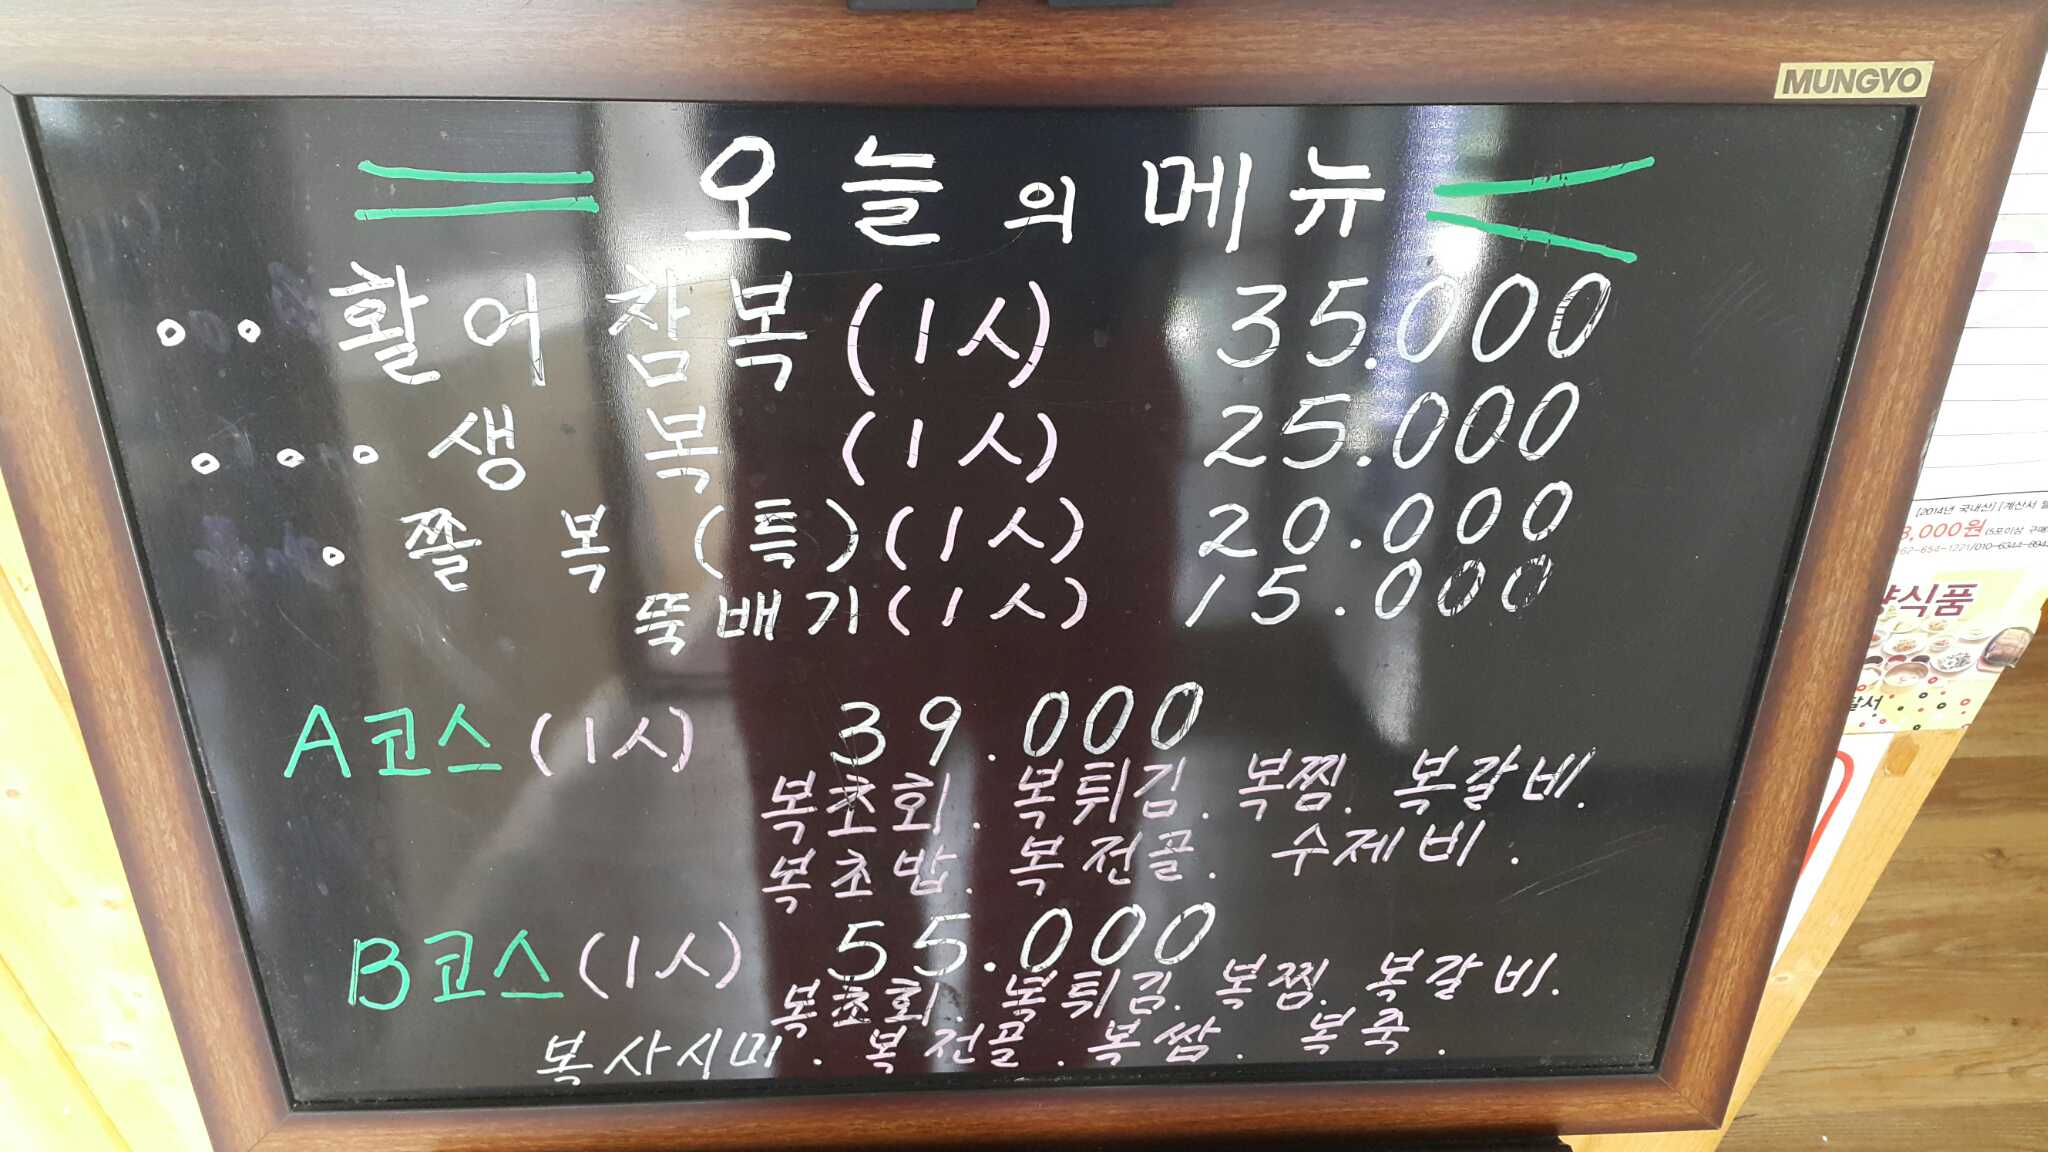 MUNGYO
오늘의 메뉴
활어 참복 (1人) 35.000
생 복 (1人) 25.000
쫄 복 (특) (1人) 20.000
뚝배기 (1人) 15.000
A코스 (1人) 39.000
복초회. 복튀김. 복찜. 복갈비.
복초밥. 복전골. 수제비.
B코스 (1人) 55.000
복초회. 복튀김. 복찜. 복갈비.
복사시미. 복전골. 복쌈. 복죽.
[2014년 국내산] [계산서
8,000원 (5포이상 구매
62-654-1221/010-6344-894
식품